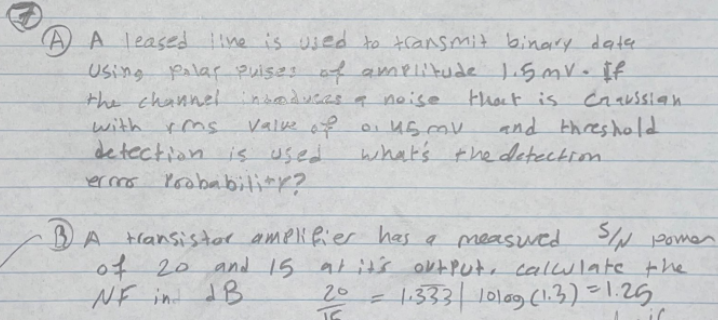 7
A A leased line is used to transmit binary data
using polar pulses of amplitude 1.5 mv. If
the channel introduces a noise that is Gaussian
with rms value of 0.45 mv and threshold
detection is used what's the detection
error Probability?
B A transistor amplifier has a measured S/N power
of 20 and 15 at it's output. calculate the
NF in dB 20/15 = 1.333 | 10log(1.3) = 1.25